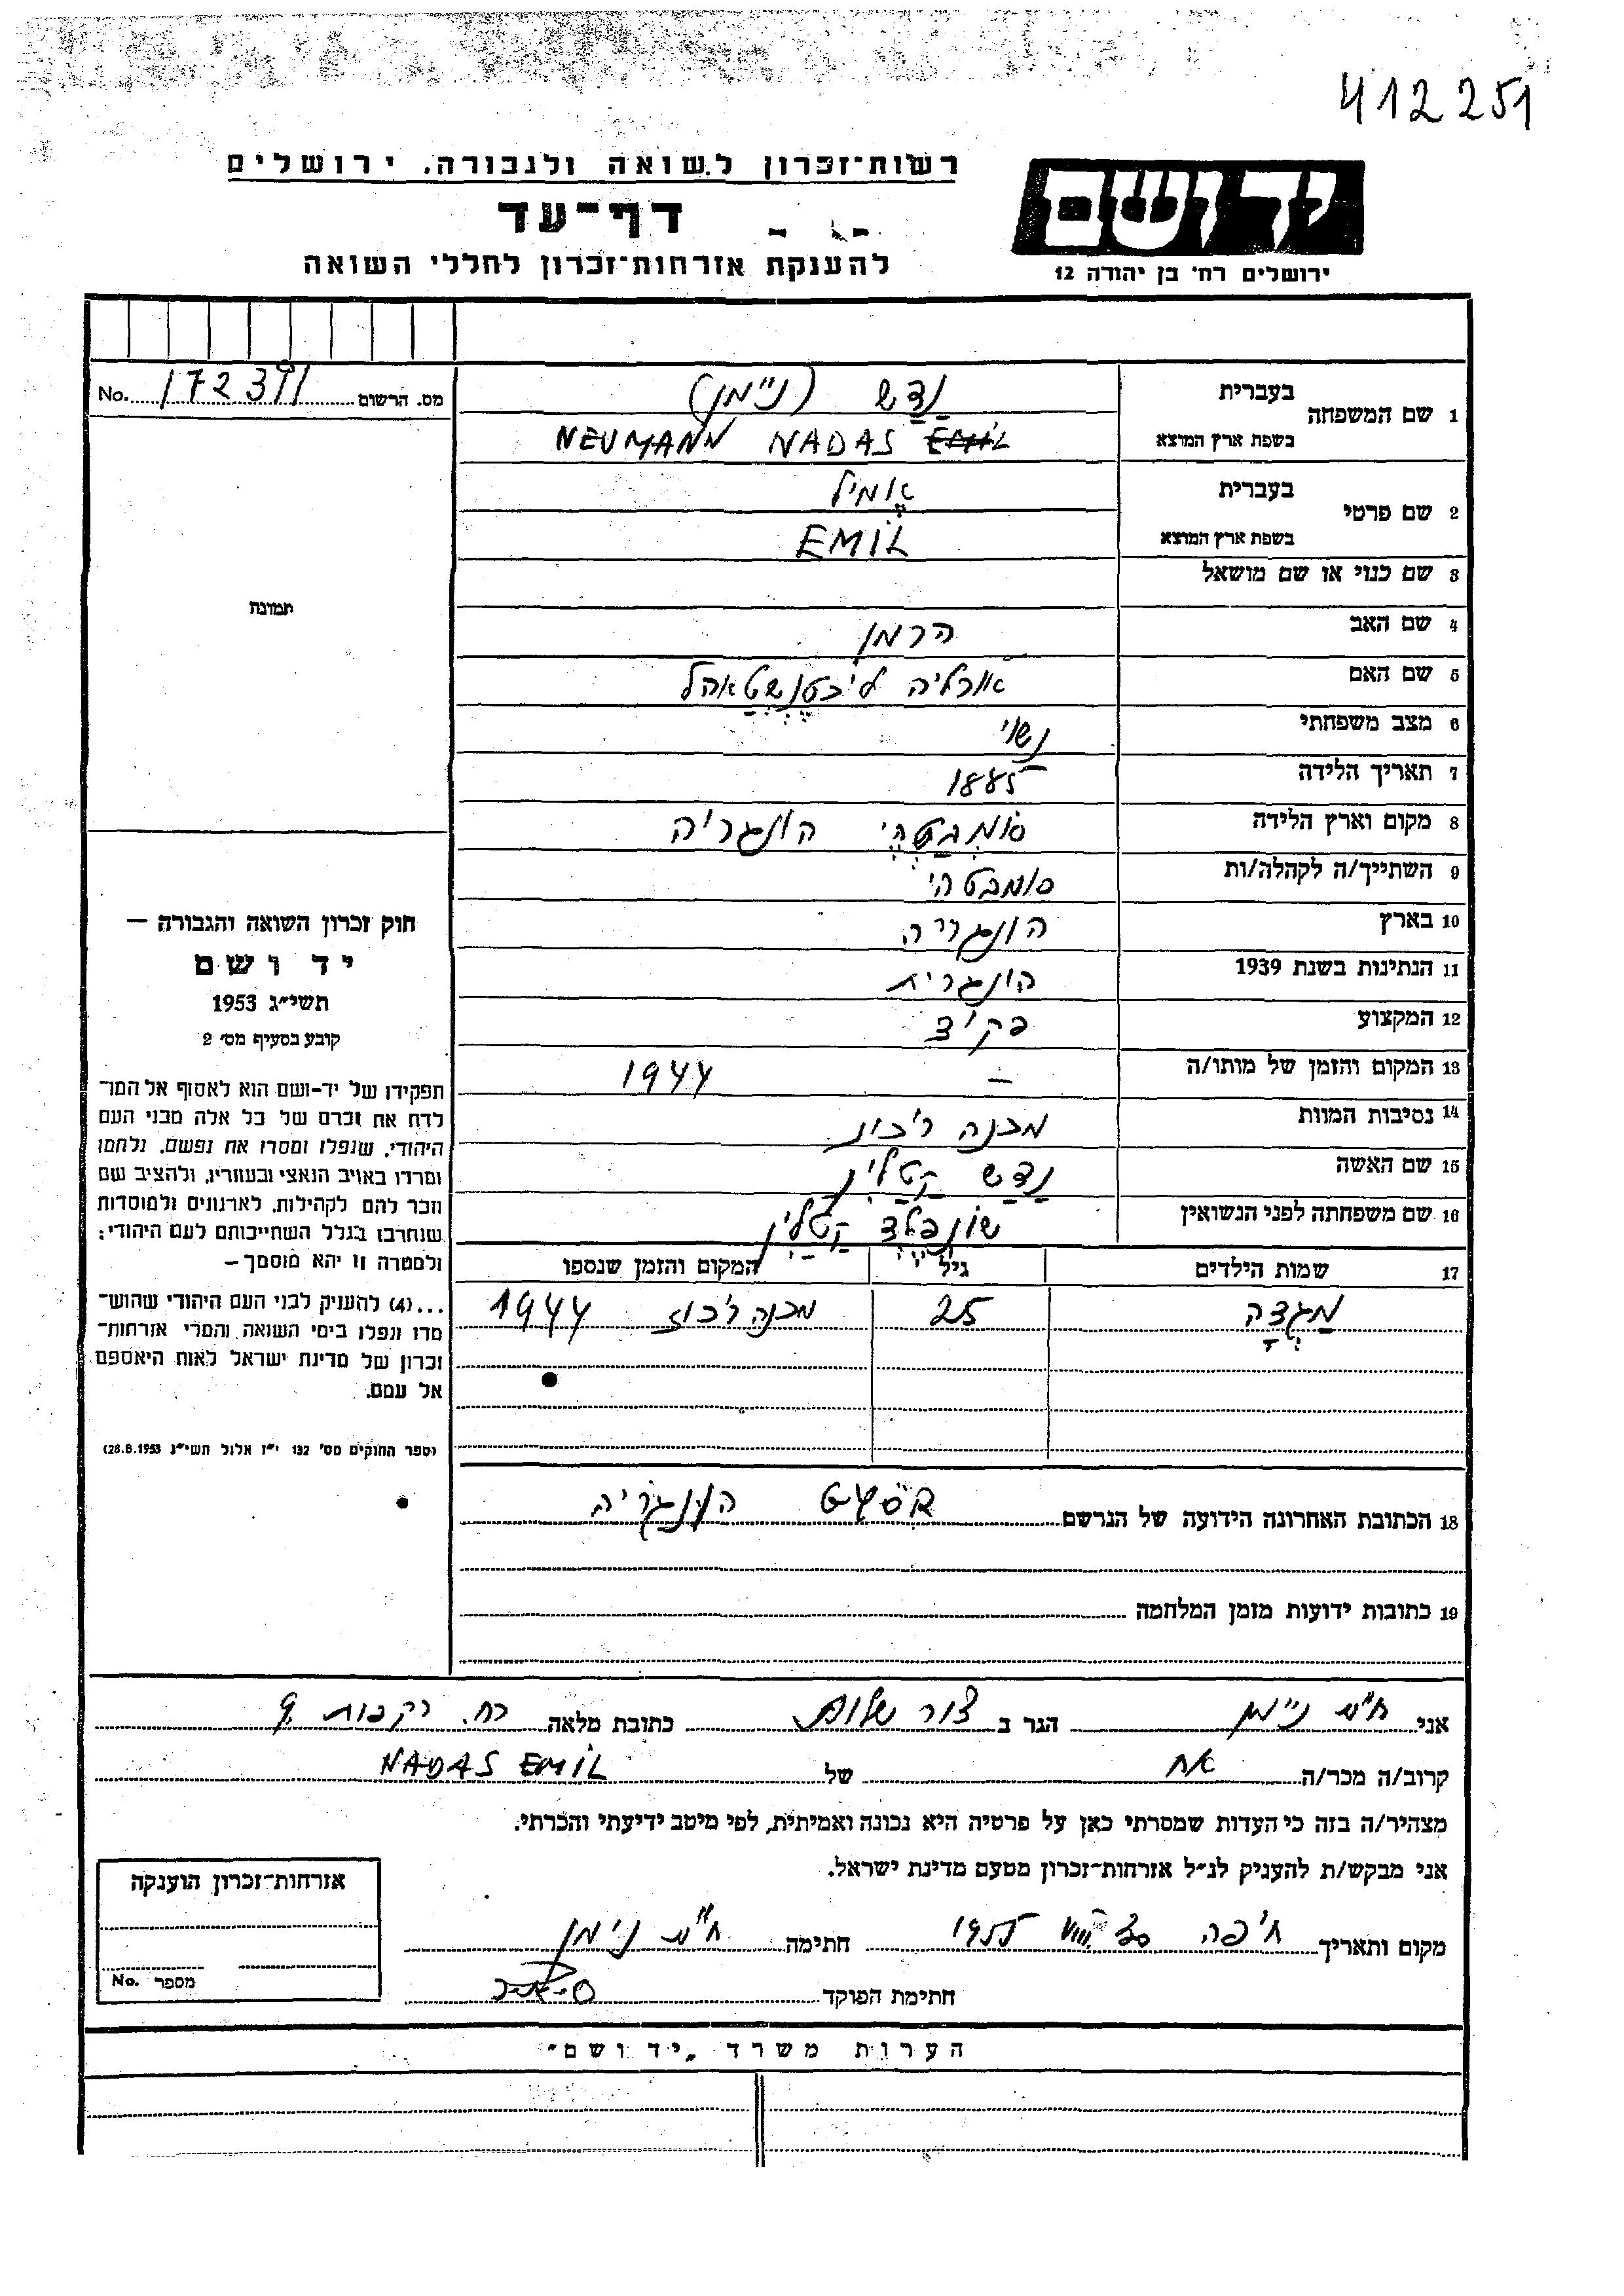 412251
רשות־זכרון לשואה ולגבורה, ירושלים
יד ושם
דף־עד
להענקת אזרחות־זכרון לחללי השואה
ירושלים רח׳ בן יהודה 12
מס. הרשום 172391 No.
1 שם המשפחה בעברית נַדַש (ניימן)
בשפת ארץ המוצא NEUMANN NADAS EMIL
2 שם פרטי בעברית אֶמיל
בשפת ארץ המוצא EMIL
3 שם כנוי או שם מושאל
תמונה
4 שם האב הרמן
5 שם האם אורליה ליכטנשטאהל
6 מצב משפחתי נשוי
7 תאריך הלידה 1885
8 מקום וארץ הלידה סומבטהי הונגריה
9 השתייך/ה לקהלה/ות סומבטהי
10 בארץ הונגריה
11 הנתינות בשנת 1939 הונגרית
12 המקצוע פקיד
13 המקום והזמן של מותו/ה — 1944
14 נסיבות המוות מחנה ריכוז
15 שם האשה נַדַש קַטַלין
16 שם משפחתה לפני הנשואין שונפלד קַטַלין
17 שמות הילדים גיל המקום והזמן שנספו
מַגדָה 25 מחנה ריכוז 1944
חוק זכרון השואה והגבורה —
יד ושם
תשי״ג 1953
קובע בסעיף מס׳ 2
תפקידו של יד-ושם הוא לאסוף אל המו־
לדת את זכרם של כל אלה מבני העם
היהודי, שנפלו ומסרו את נפשם, נלחמו
ומרדו באויב הנאצי ובעוזריו, ולהציב שם
וזכר להם לקהילות, לארגונים ולמוסדות
שנחרבו בגלל השתייכותם לעם היהודי;
ולמטרה זו יהא מוסמך —
...(4) להעניק לבני העם היהודי שהוש־
מדו ונפלו בימי השואה והמרי אזרחות־
זכרון של מדינת ישראל לאות היאספם
אל עמם.
(ספר החוקים מס׳ 132 י״ז אלול תשי״ג 28.8.1953)
18 הכתובת האחרונה הידועה של הנרשם הונגריה
19 כתובות ידועות מזמן המלחמה
אני ניימן הגר ב צור שלום כתובת מלאה רח. רקפות 9
קרוב/ה מכר/ה אח של NADAS EMIL
מצהיר/ה בזה כי העדות שמסרתי כאן על פרטיה היא נכונה ואמיתית, לפי מיטב ידיעתי והכרתי.
אני מבקש/ת להעניק לנ״ל אזרחות־זכרון מטעם מדינת ישראל.
מקום ותאריך חיפה 1955 חתימה ניימן
חתימת הפוקד
אזרחות־זכרון הוענקה
מספר No.
הערות משרד „יד ושם״